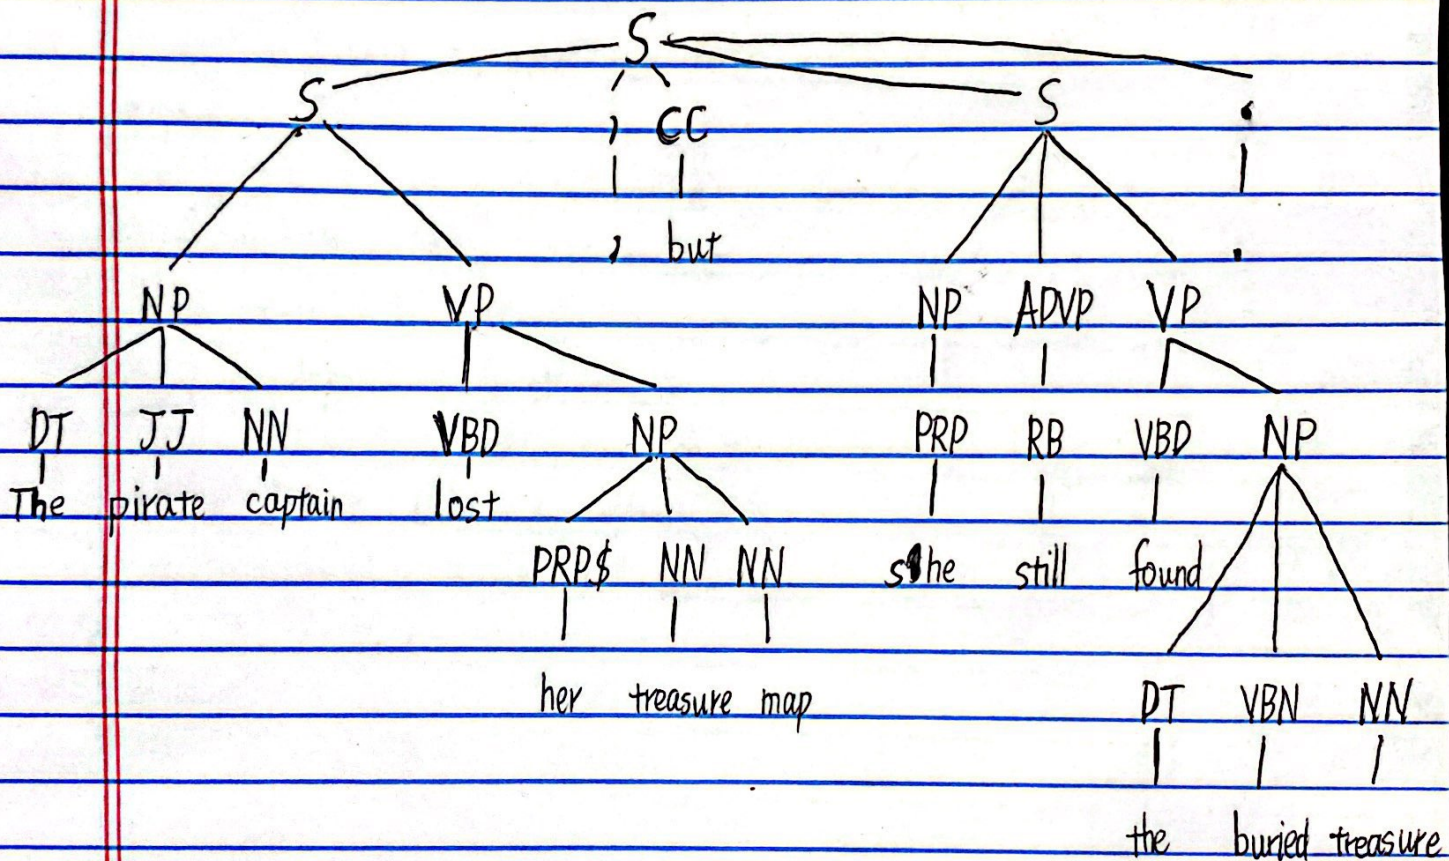 S
S , CC S .
, but .
NP VP NP ADVP VP
DT JJ NN VBD NP PRP RB VBD NP
The pirate captain lost
PRP$ NN NN she still found
her treasure map DT VBN NN
the buried treasure